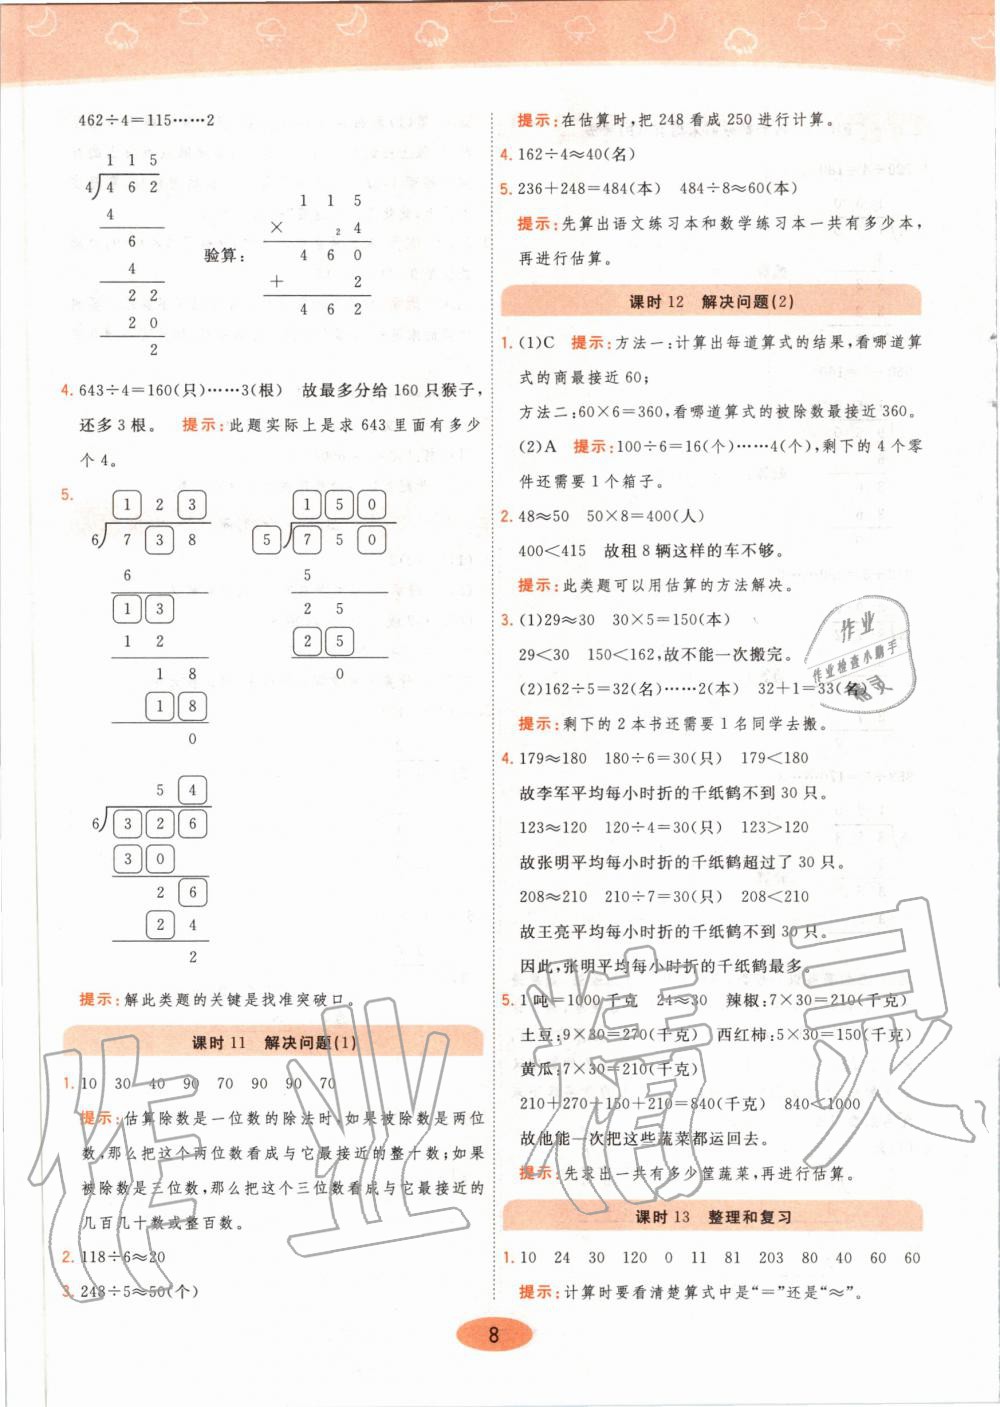 462÷4=115……2
1 1 5
4 4 6 2
4
6
4
2 2
2 0
2
验算:
1 1 5
× 2 4
4 6 0
+ 2
4 6 2
4. 643÷4=160(只)……3(根) 故最多分给 160 只猴子,
还多 3 根。 提示:此题实际上是求 643 里面有多少
个 4。
5.
1 2 3
6 7 3 8
6
1 3
1 2
1 8
1 8
0
1 5 0
5 7 5 0
5
2 5
2 5
0
5 4
6 3 2 6
3 0
2 6
2 4
2
提示:解此类题的关键是找准突破口。
课时 11 解决问题(1)
1. 10 30 40 90 70 90 90 70
提示:估算除数是一位数的除法时,如果被除数是两位
数,那么把这个两位数看成与它最接近的整十数;如果
被除数是三位数,那么把这个三位数看成与它最接近的
几百几十数或整百数。
2. 118÷6≈20
3. 248÷5≈50(个)
提示:在估算时,把 248 看成 250 进行计算。
4. 162÷4≈40(名)
5. 236+248=484(本) 484÷8≈60(本)
提示:先算出语文练习本和数学练习本一共有多少本,
再进行估算。
课时 12 解决问题(2)
1. (1)C 提示:方法一:计算出每道算式的结果,看哪道算
式的商最接近 60;
方法二:60×6=360,看哪道算式的被除数最接近 360。
(2)A 提示:100÷6=16(个)……4(个),剩下的 4 个零
件还需要 1 个箱子。
2. 48≈50 50×8=400(人)
400<415 故租 8 辆这样的车不够。
提示:此类题可以用估算的方法解决。
3. (1)29≈30 30×5=150(本)
29<30 150<162,故不能一次搬完。
(2)162÷5=32(名)……2(本) 32+1=33(名)
提示:剩下的 2 本书还需要 1 名同学去搬。
4. 179≈180 180÷6=30(只) 179<180
故李军平均每小时折的千纸鹤不到 30 只。
123≈120 120÷4=30(只) 123>120
故张明平均每小时折的千纸鹤超过了 30 只。
208≈210 210÷7=30(只) 208<210
故王亮平均每小时折的千纸鹤不到 30 只。
因此,张明平均每小时折的千纸鹤最多。
5. 1 吨=1000 千克 24≈30 辣椒:7×30=210(千克)
土豆:9×30=270(千克) 西红柿:5×30=150(千克)
黄瓜:7×30=210(千克)
210+270+150+210=840(千克) 840<1000
故他能一次把这些蔬菜都运回去。
提示:先求出一共有多少筐蔬菜,再进行估算。
课时 13 整理和复习
1. 10 24 30 120 0 11 81 203 80 40 60 60
提示:计算时要看清楚算式中是“=”还是“≈”。
8
作业
作业检查小助手
精灵
作业精灵